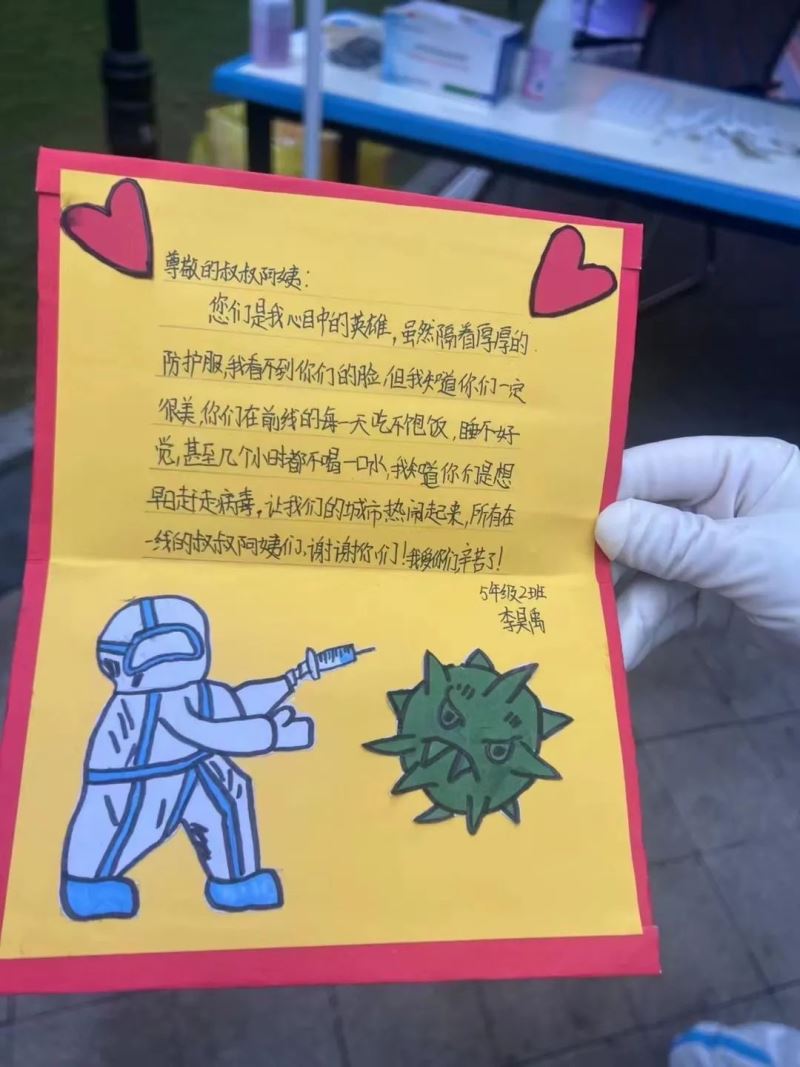 尊敬的叔叔阿姨：
您们是我心目中的英雄，虽然隔着厚厚的
防护服，我看不到你们的脸，但我知道你们一定
很美，你们在前线的每一天吃不饱饭，睡不好
觉，甚至几个小时都不喝一口水，我知道你们是想
早日赶走病毒，让我们的城市热闹起来，所有在
一线的叔叔阿姨们，谢谢你们！我爱你们，辛苦了！
5年级2班
李昊禹